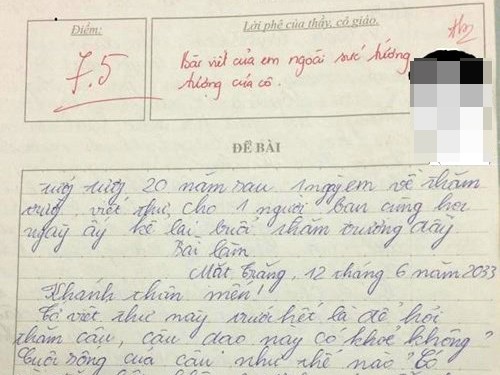 Điểm:
7.5
Lời phê của thầy, cô giáo.
Bài viết của em ngoài sức tưởng
tượng của cô.
ĐỀ BÀI
20 năm sau 1 ngày em về thăm
trường viết thư cho 1 người bạn cùng học
ngày ấy kể lại buổi thăm trường đấy
Bài làm
Mặt Trăng, 12 tháng 6 năm 2033
Khánh thân mến!
Tớ viết thư này trước hết là để hỏi
thăm cậu, cậu dạo này có khoẻ không
Cuộc sống của cậu như thế nào? Có